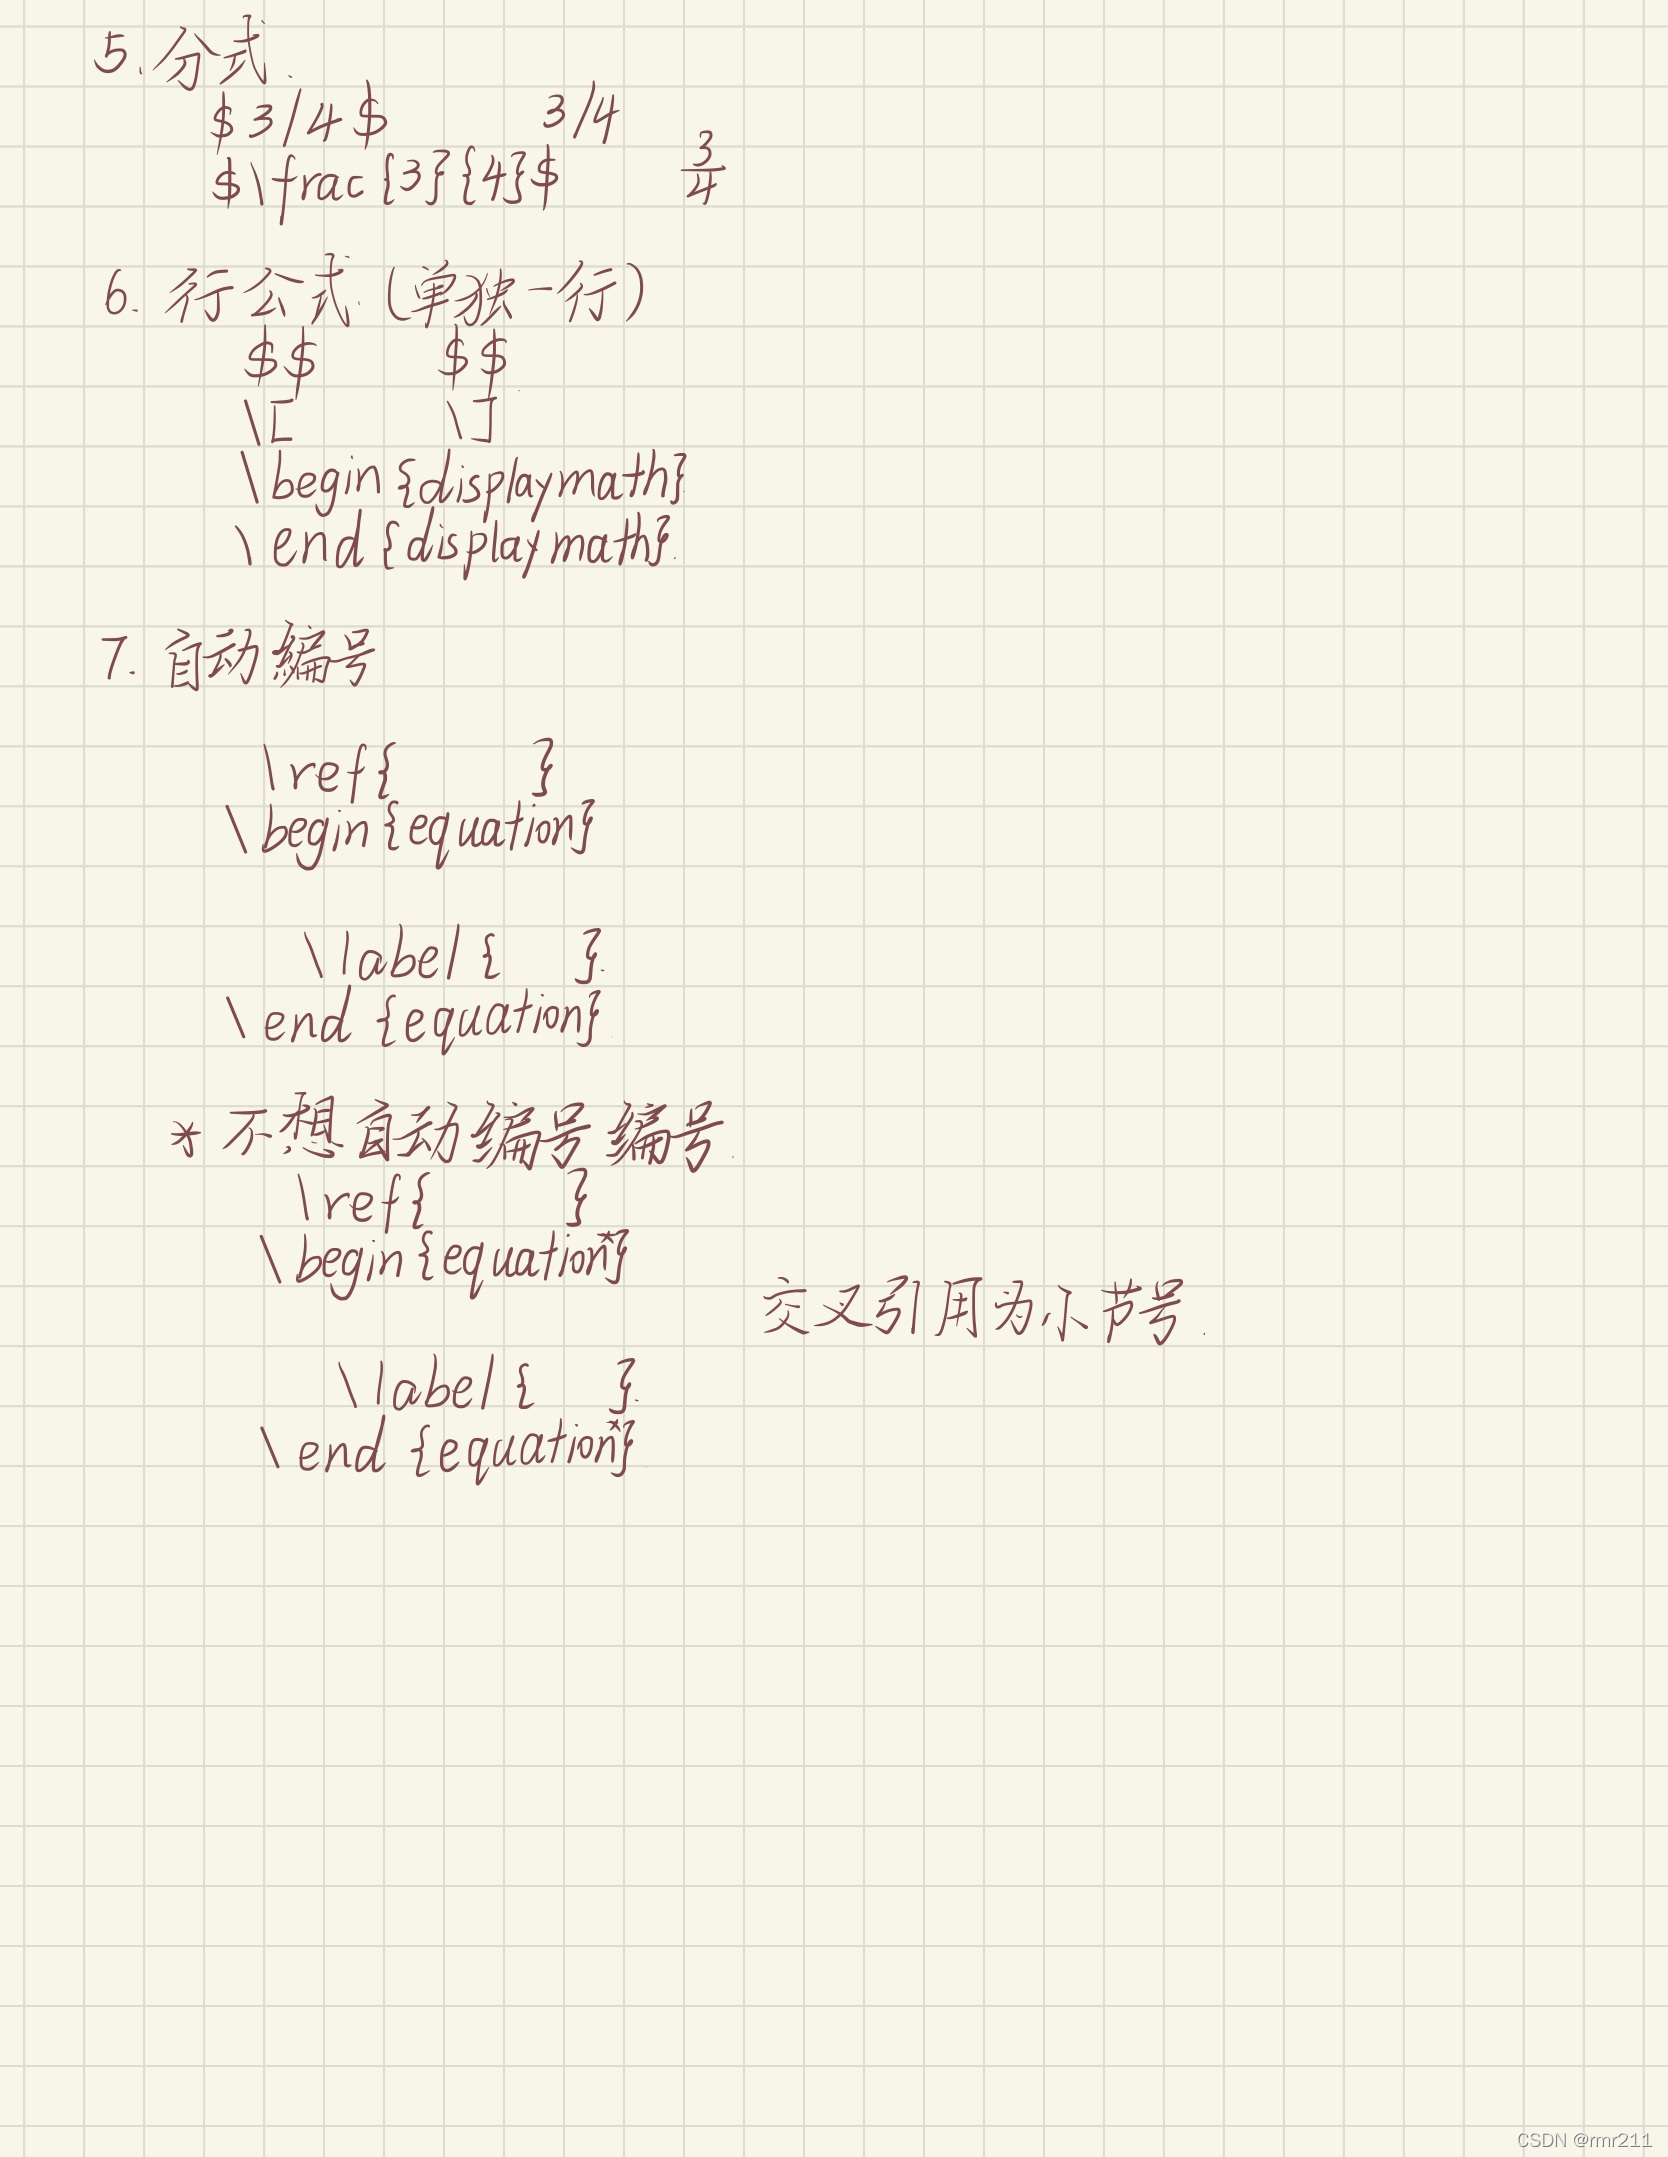 5. 分式.
$3/4$ 3/4
$\frac{3}{4}$ 3/4
6. 行公式 (单独一行)
$$ $$
\[ \]
\begin{displaymath}
\end{displaymath}.
7. 自动编号
\ref{ }
\begin{equation}
\label{ }.
\end{equation}
* 不想自动编号编号.
\ref{ }
\begin{equation*}
交叉引用为小节号.
\label{ }.
\end{equation*}
CSDN @rmr211